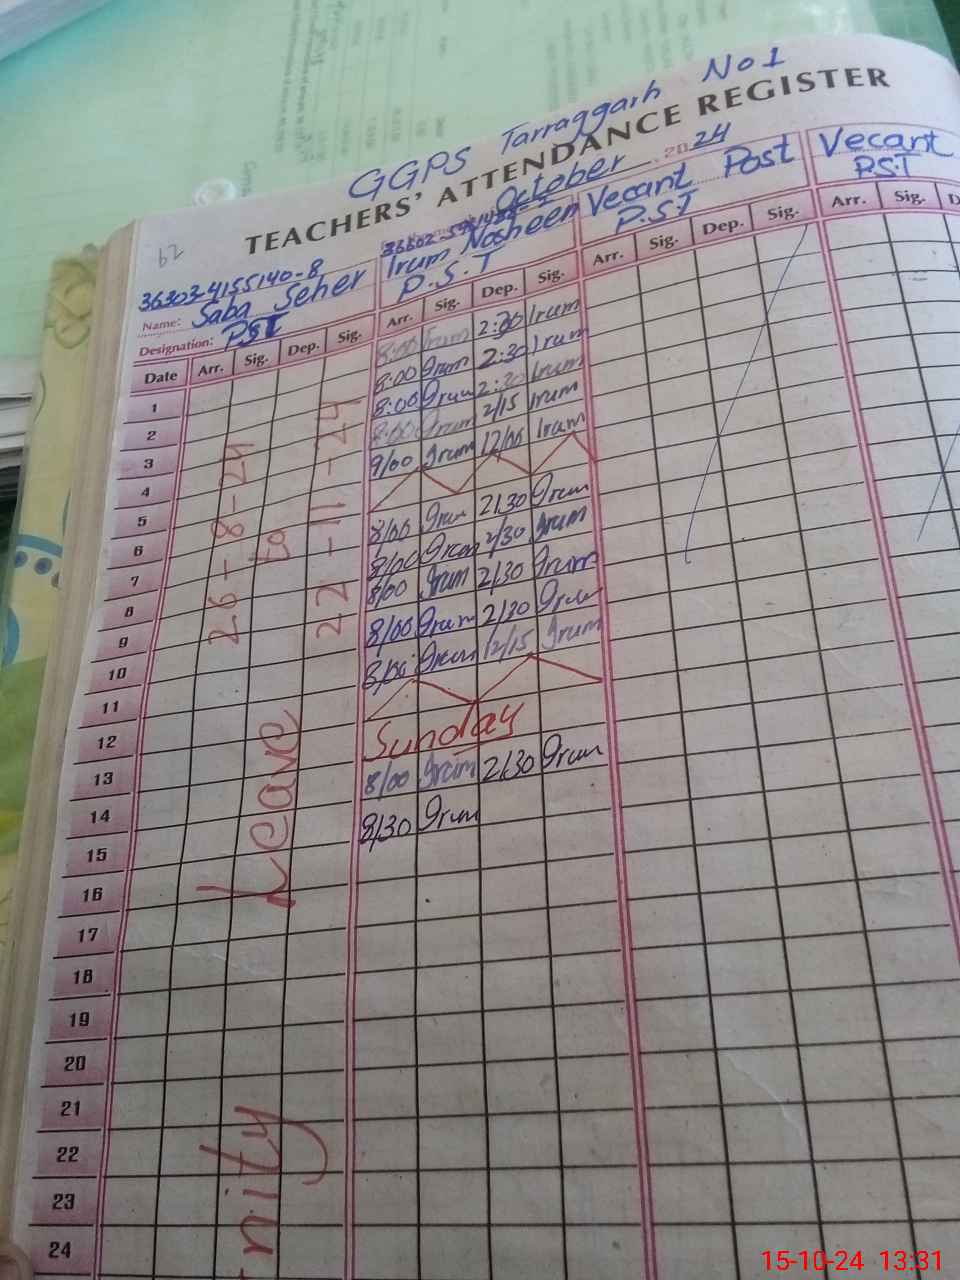 GGPS Tarraggarh No 1
TEACHERS' ATTENDANCE REGISTER
October 2024
62
36303-4155140-8
Name: Saba Seher
Designation: PST
Irum Nosheen
P.S.T
Vecant Post
P.S.T
Vecant
P.S.T
Date Arr. Sig. Dep. Sig. Arr. Sig. Dep. Sig. Arr. Sig. Dep. Sig. Arr. Sig. D
1 8:00 Irum 2:30 Irum
2 8:00 Irum 2:30 Irum
3 8:00 Irum 2:30 Irum
4 8:00 Irum 2/15 Irum
5 9/00 Irum 12/00 Irum
6
7 8/00 Irum 2/30 Irum
8 8/00 Irum 2/30 Irum
9 8/00 Irum 2/30 Irum
10 8/00 Irum 2/30 Irum
11 8/00 Irum 12/15 Irum
12
13 Sunday
14 8/00 Irum 2/30 Irum
15 8/30 Irum
16
17
18
19
20
21
22
23
24
26-8-24
to
22-11-24
Leave
nity
15-10-24 13:31